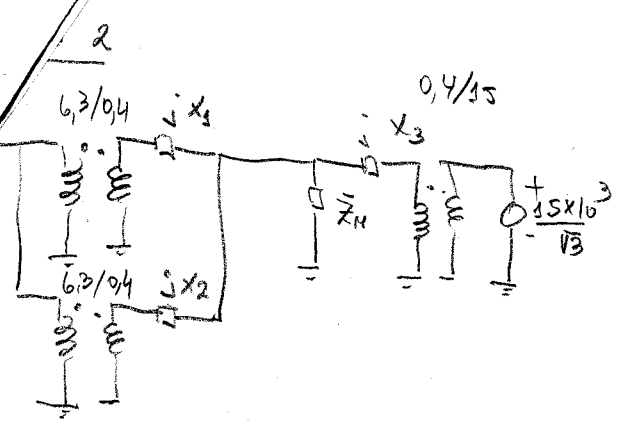 2
6,3/0,4
j X1
0,4/15
j X3
Z̄M
+
15×10³
-
√3
6,3/0,4
j X2